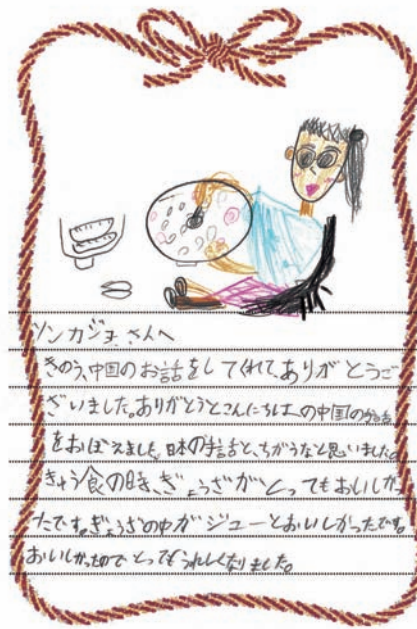 ソンカジョさんへ
きのう、中国のお話をしてくれて、ありがとうご
ざいました。ありがとうとこんにちはの中国のお話
をおぼえました。日本の手話と、ちがうなと思いました。
きゅう食の時、ぎょうざがとってもおいしかっ
たです。ぎょうざの中がジューとおいしかったです。
おいしかったのでとってもうれしくなりました。